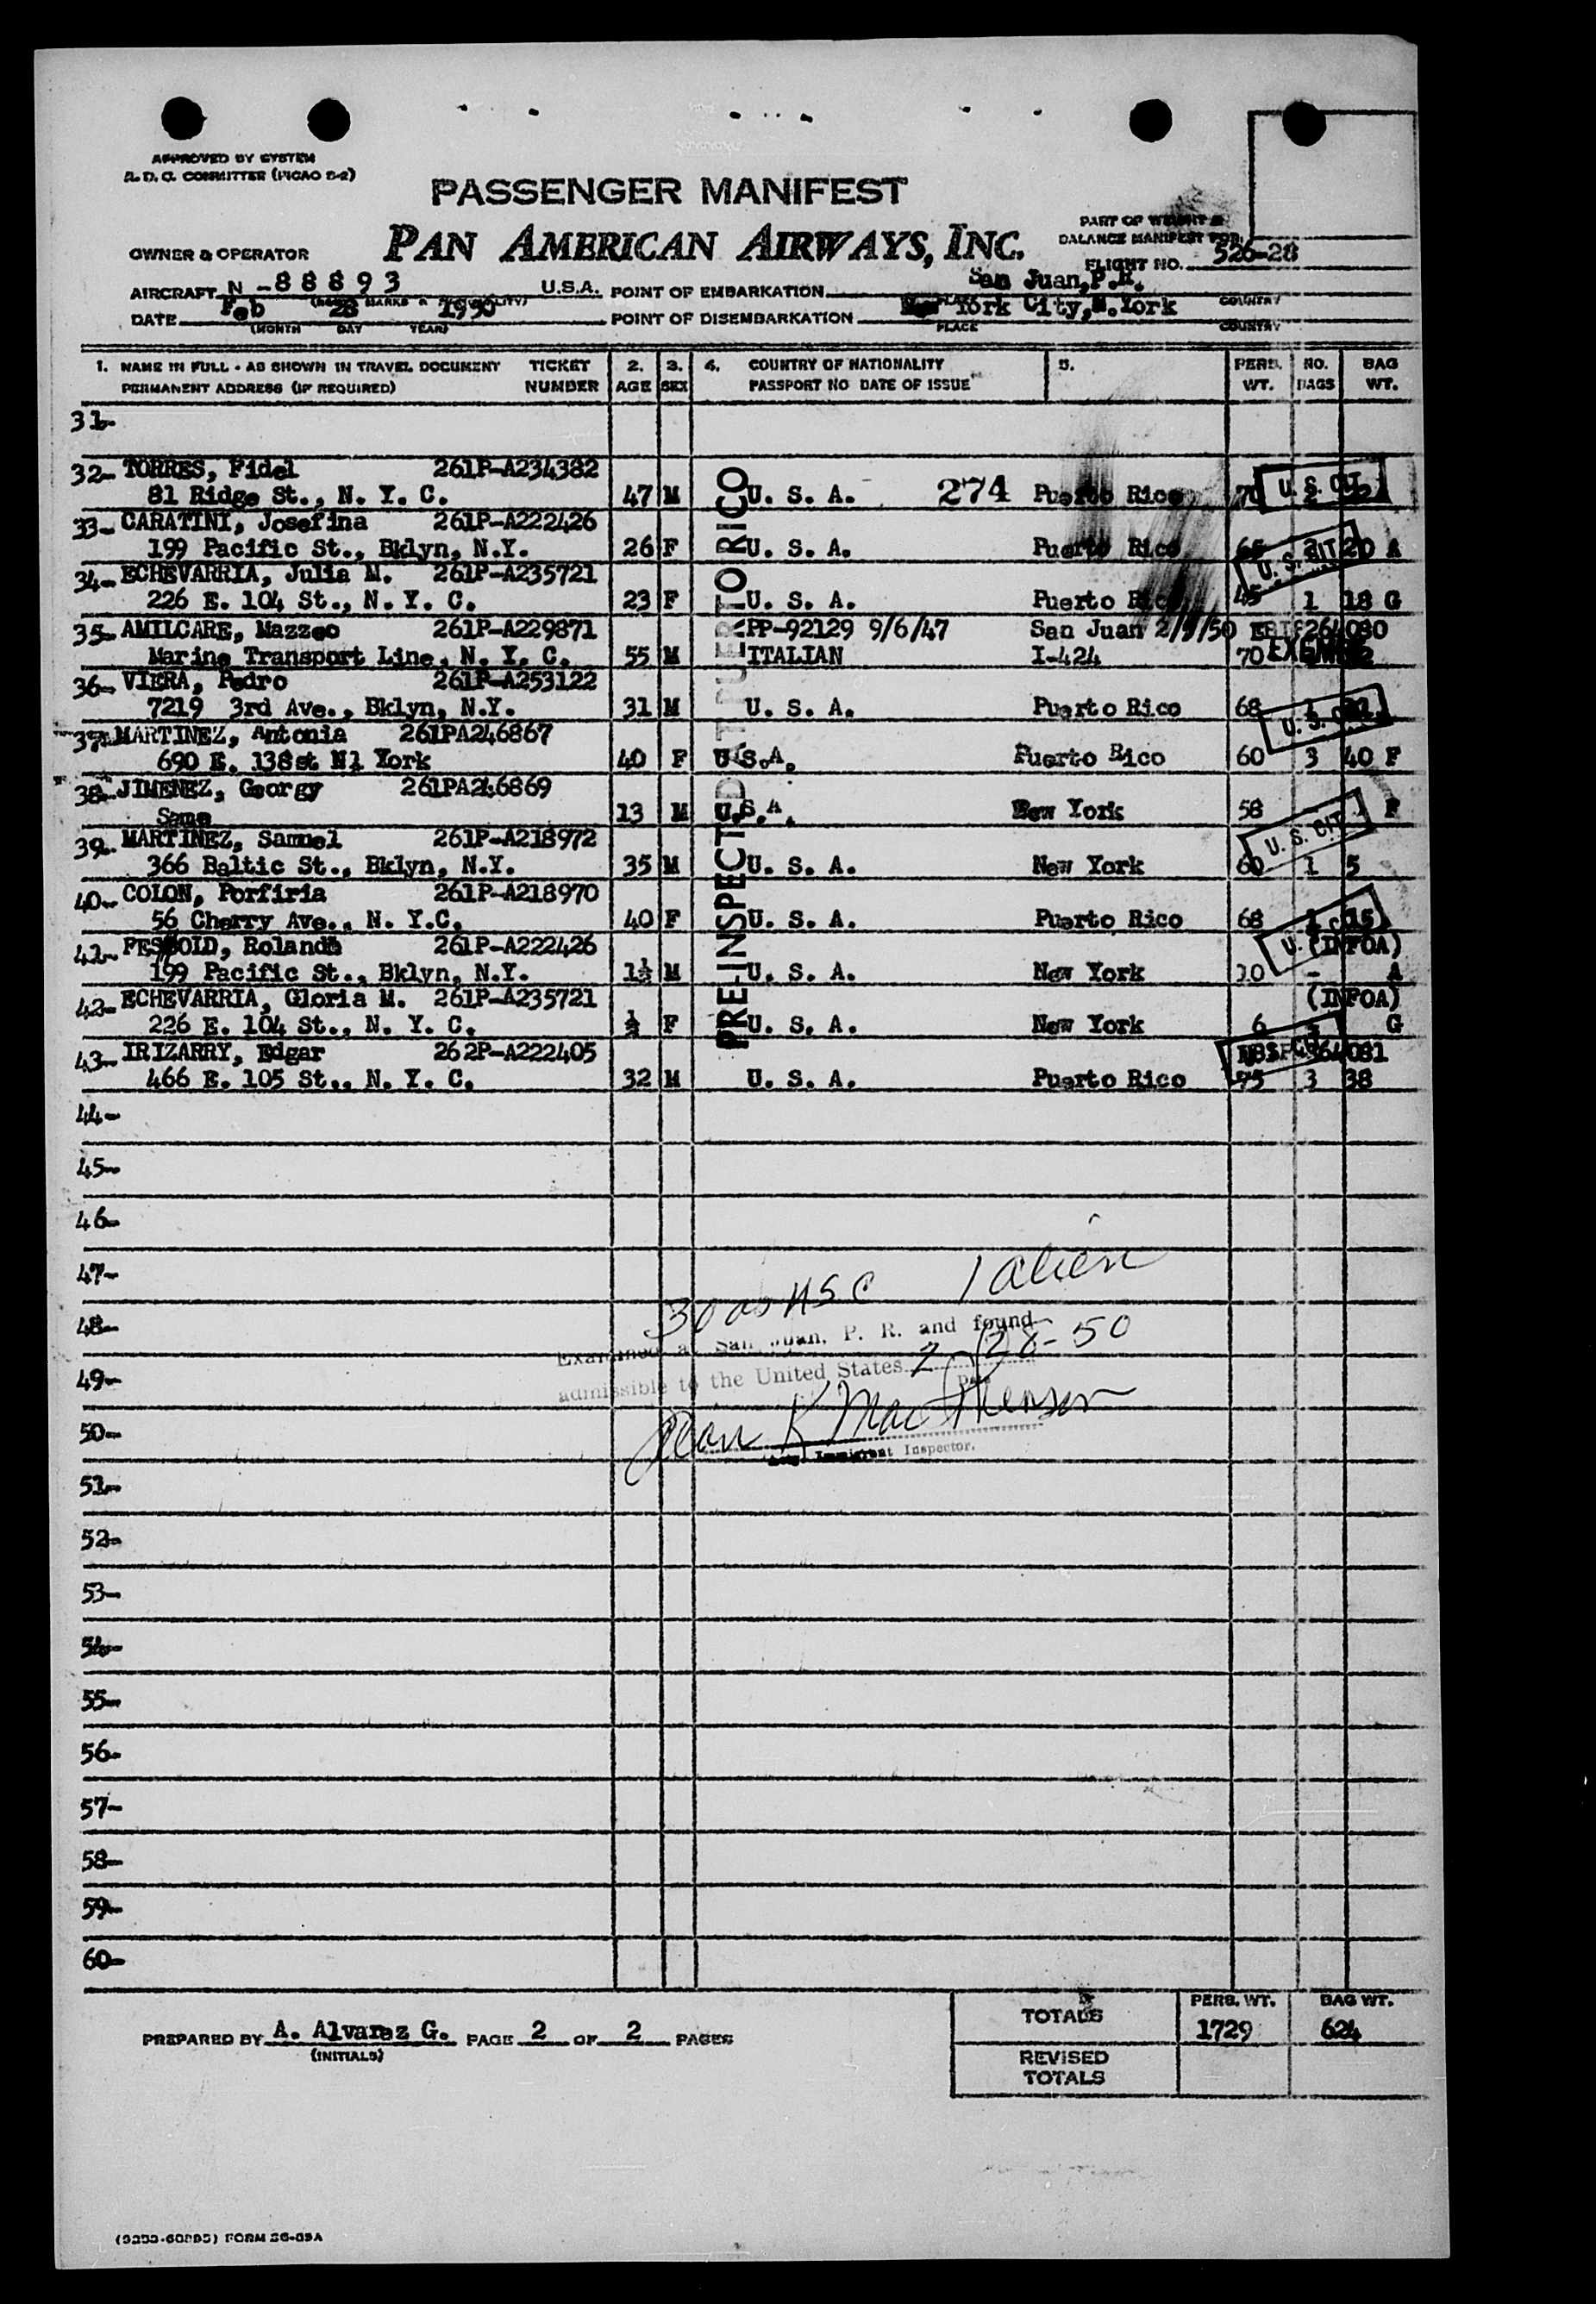 APPROVED BY SYSTEM
R. D. C. COMMITTEE (PICAO B-2)
PASSENGER MANIFEST
PAN AMERICAN AIRWAYS, INC.
PART OF WEIGHT &
BALANCE MANIFEST FOR
FLIGHT NO. 526-28
OWNER & OPERATOR
AIRCRAFT N -88893 U.S.A. POINT OF EMBARKATION San Juan, P.R.
DATE Feb 28 1950 POINT OF DISEMBARKATION New York City, N.York
(MONTH DAY YEAR) PLACE COUNTRY
1. NAME IN FULL - AS SHOWN IN TRAVEL DOCUMENT TICKET 2. 3. 4. COUNTRY OF NATIONALITY 5. PERS. NO. BAG
PERMANENT ADDRESS (IF REQUIRED) NUMBER AGE SEX PASSPORT NO DATE OF ISSUE WT. BAGS WT.
31-
32- TORRES, Fidel 261P-A234382
81 Ridge St., N. Y. C. 47 M U. S. A. 274 Puerto Rico 70 U. S. CIT.
33- CARATINI, Josefina 261P-A222426
199 Pacific St., Bklyn, N.Y. 26 F U. S. A. Puerto Rico 20 A
U. S. CIT
34- ECHEVARRIA, Julia M. 261P-A235721
226 E. 104 St., N. Y. C. 23 F U. S. A. Puerto Rico 45 1 18 G
35- AMILCARE, Mazzeo 261P-A229871 PP-92129 9/6/47 San Juan
Marine Transport Line, N. Y. C. 55 M ITALIAN I-424 70
36- VIERA, Pedro 261P-A253122
7219 3rd Ave., Bklyn, N.Y. 31 M U. S. A. Puerto Rico 68 1
U. S. CIT.
37- MARTINEZ, Antonia 261PA246867
690 E. 138st N1 York 40 F U.S.A. Puerto Rico 60 3 40 F
38- JIMENEZ, Georgy 261PA246869
Same 13 M U.S.A. New York 58 F
U. S. CIT.
39- MARTINEZ, Samuel 261P-A218972
366 Baltic St., Bklyn, N.Y. 35 M U. S. A. New York 60 1 5
40- COLON, Porfiria 261P-A218970
56 Cherry Ave., N. Y.C. 40 F U. S. A. Puerto Rico 68 1 15
41- Roland 261P-A222426 (INFOA)
199 Pacific St., Bklyn, N.Y. 1½ M U. S. A. New York - A
42- ECHEVARRIA, Gloria M. 261P-A235721 (INFOA)
226 E. 104 St., N. Y. C. ½ F U. S. A. New York 6 G
43- IRIZARRY, Edgar 262P-A222405
466 E. 105 St., N. Y. C. 32 M U. S. A. Puerto Rico 75 3 38
PRE-INSPECTED AT PUERTO RICO
44-
45-
46-
47-
48-
49-
50-
30 as USC 1 alien
Examined at San Juan, P. R. and found
admissible to the United States 2/28-50
Immigrant Inspector.
51-
52-
53-
54-
55-
56-
57-
58-
59-
60-
PERS. WT. BAG WT.
TOTALS 1729 624
REVISED
TOTALS
PREPARED BY A. Alvarez G. PAGE 2 OF 2 PAGES
(INITIALS)